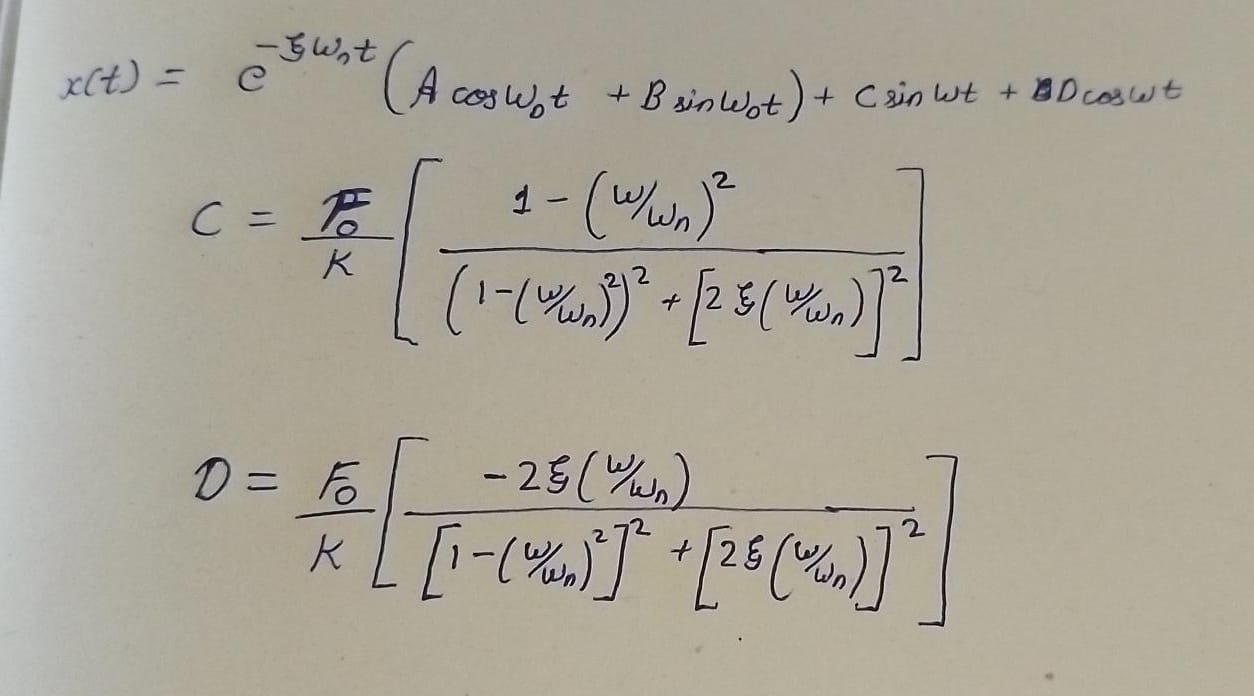 x(t) = e^{-ξω_n t} (A cos ω_D t + B sin ω_D t) + C sin ωt + D cos ωt
C = F_0/K [ (1 - (ω/ω_n)^2) / ((1-(ω/ω_n)^2)^2 + [2ξ(ω/ω_n)]^2) ]
D = F_0/K [ (-2ξ(ω/ω_n)) / ([1-(ω/ω_n)^2]^2 + [2ξ(ω/ω_n)]^2) ]